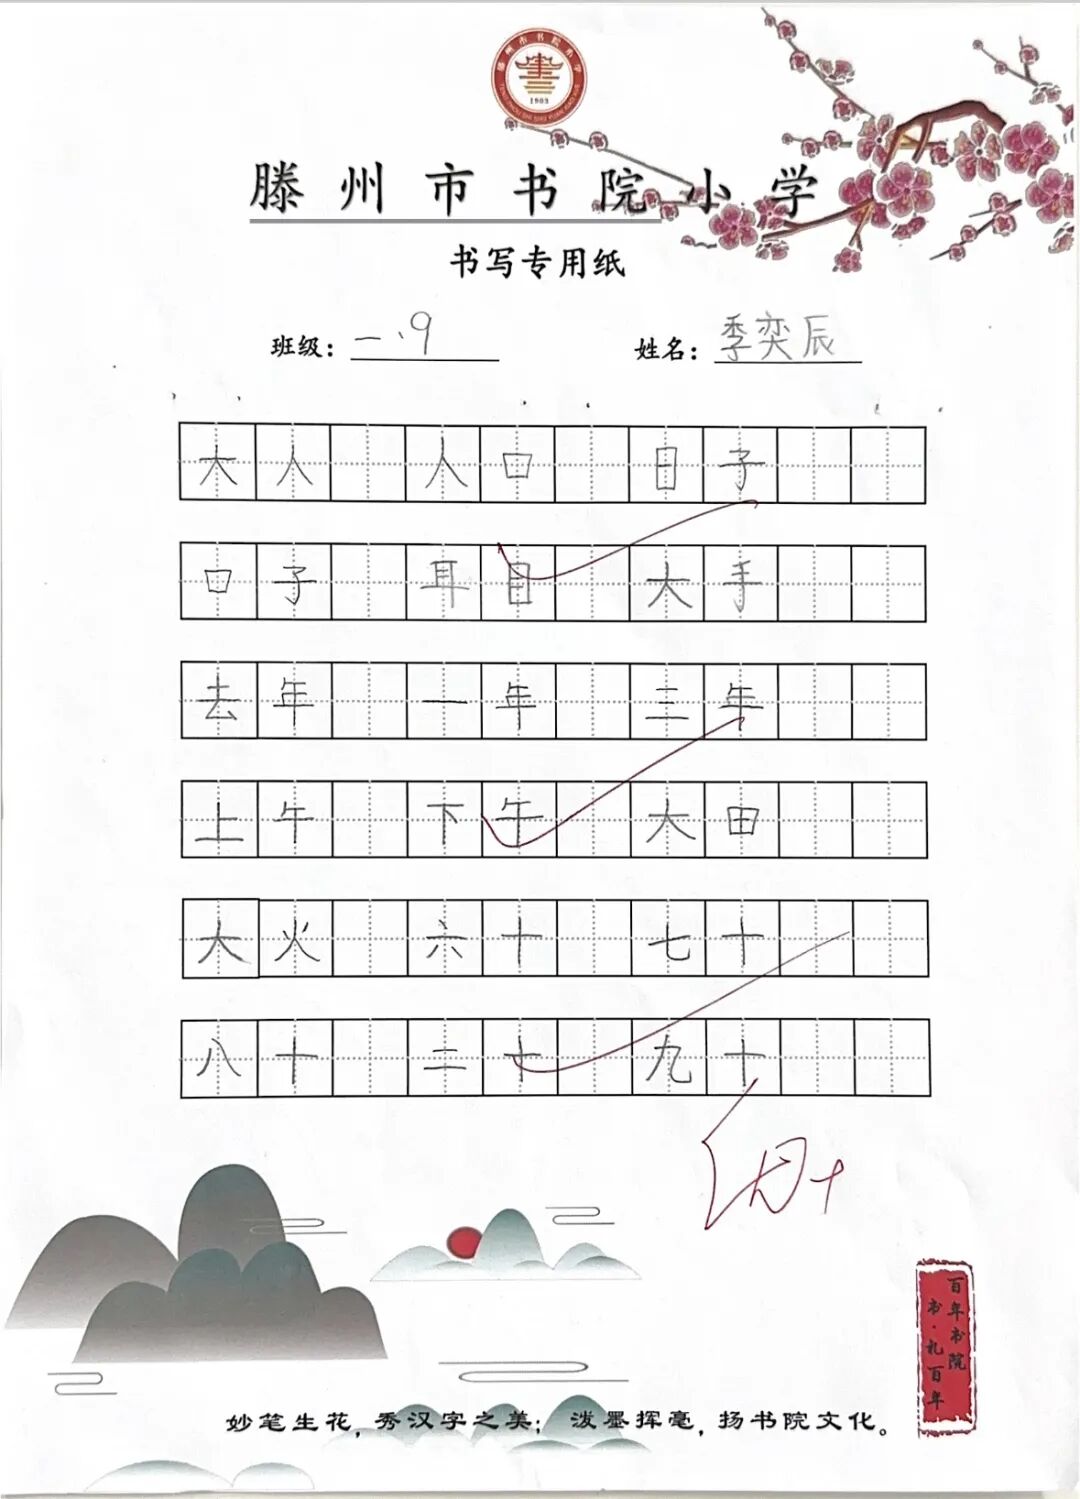 滕州市书院小学
1903
滕州市书院小学
书写专用纸
班级：一.9 姓名：季奕辰
大人 人口 日子
口子 耳目 大手
去年 一年 三年
上午 下午 大田
大火 六十 七十
八十 二十 九十
百年书院
书·礼百年
妙笔生花，秀汉字之美； 泼墨挥毫，扬书院文化。